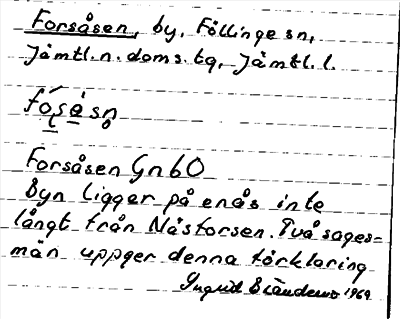 Forsåsen, by, Föllinge sn,
Jämtl.n.doms.tg, Jämtl.l.
fósàsn
Forsåsen GnbO
Byn ligger på en ås inte
långt från Näsforsen. Två sages=
män uppger denna förklaring
Ingrid 1969